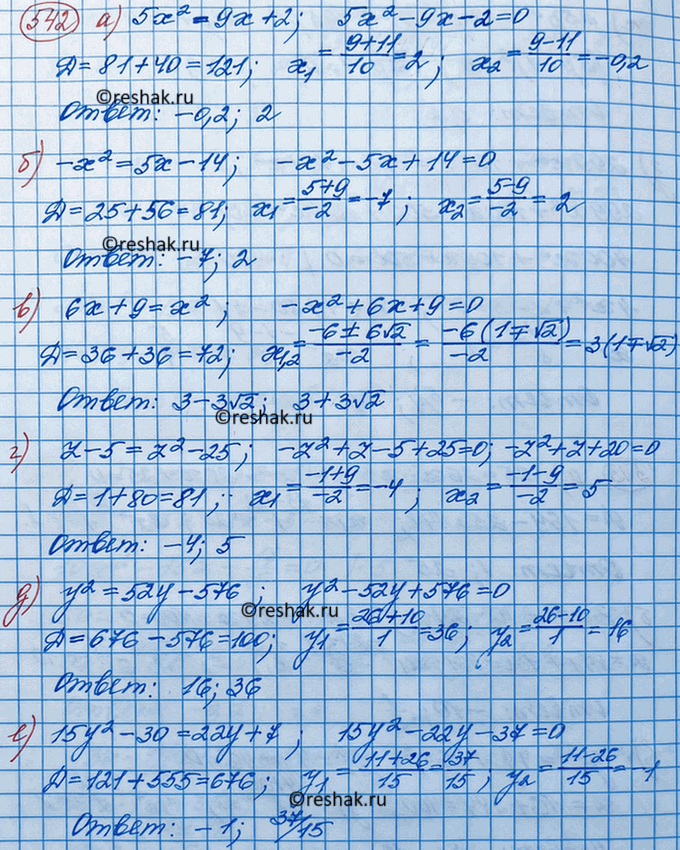 542 а) 5x² = 9x+2; 5x²-9x-2=0
Д=81+40=121; x₁=(9+11)/10=2; x₂=(9-11)/10=-0,2
©reshak.ru
Ответ: -0,2; 2
б) -x²=5x-14; -x²-5x+14=0
Д=25+56=81; x₁=(5+9)/-2=-7; x₂=(5-9)/-2=2
©reshak.ru
Ответ: -7; 2
в) 6x+9=x²; -x²+6x+9=0
Д=36+36=72; x₁,₂=(-6±6√2)/-2=(-6(1∓√2))/-2=3(1∓√2)
Ответ: 3-3√2; 3+3√2
©reshak.ru
г) z-5=z²-25; -z²+z-5+25=0; -z²+z+20=0
Д=1+80=81; x₁=(-1+9)/-2=-4; x₂=(-1-9)/-2=5
Ответ: -4; 5
д) y²=52y-576; y²-52y+576=0
©reshak.ru
Д=676-576=100; y₁=(26+10)/1=36; y₂=(26-10)/1=16
Ответ: 16; 36
е) 15y²-30=22y+7; 15y²-22y-37=0
Д=121+555=676; y₁=(11+26)/15=37/15; y₂=(11-26)/15=-1
©reshak.ru
Ответ: -1; 37/15